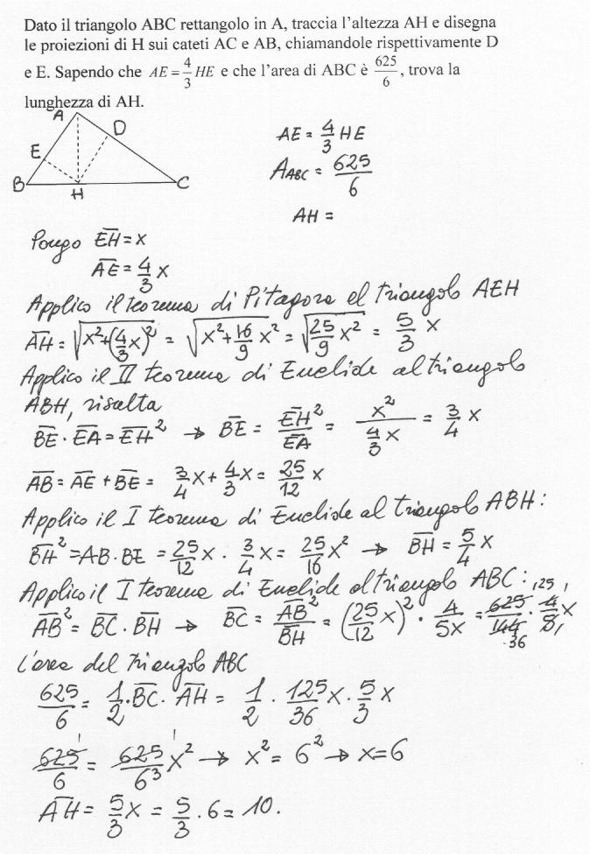 Dato il triangolo ABC rettangolo in A, traccia l'altezza AH e disegna
le proiezioni di H sui cateti AC e AB, chiamandole rispettivamente D
e E. Sapendo che AE = 4/3 HE e che l'area di ABC è 625/6, trova la
lunghezza di AH.
A
D
E
B
H
C
AE = 4/3 HE
A_ABC = 625/6
AH =
Pongo EH = x
AE = 4/3 x
Applico il teorema di Pitagora al triangolo AEH
AH = √(x² + (4/3 x)²) = √(x² + 16/9 x²) = √(25/9 x²) = 5/3 x
Applico il II teorema di Euclide al triangolo
ABH, risulta
BE · EA = EH² → BE = EH²/EA = x²/(4/3 x) = 3/4 x
AB = AE + BE = 3/4 x + 4/3 x = 25/12 x
Applico il I teorema di Euclide al triangolo ABH:
BH² = AB · BE = 25/12 x · 3/4 x = 25/16 x² → BH = 5/4 x
Applico il I teorema di Euclide al triangolo ABC:
AB² = BC · BH → BC = AB²/BH = (25/12 x)² · 4/5x = 625/144 · 4/5 x 125 1 36 1
L'area del triangolo ABC
625/6 = 1/2 · BC · AH = 1/2 · 125/36 x · 5/3 x
625/6 = 625/6³ x² → x² = 6² → x = 6 1 1
AH = 5/3 x = 5/3 · 6 = 10.